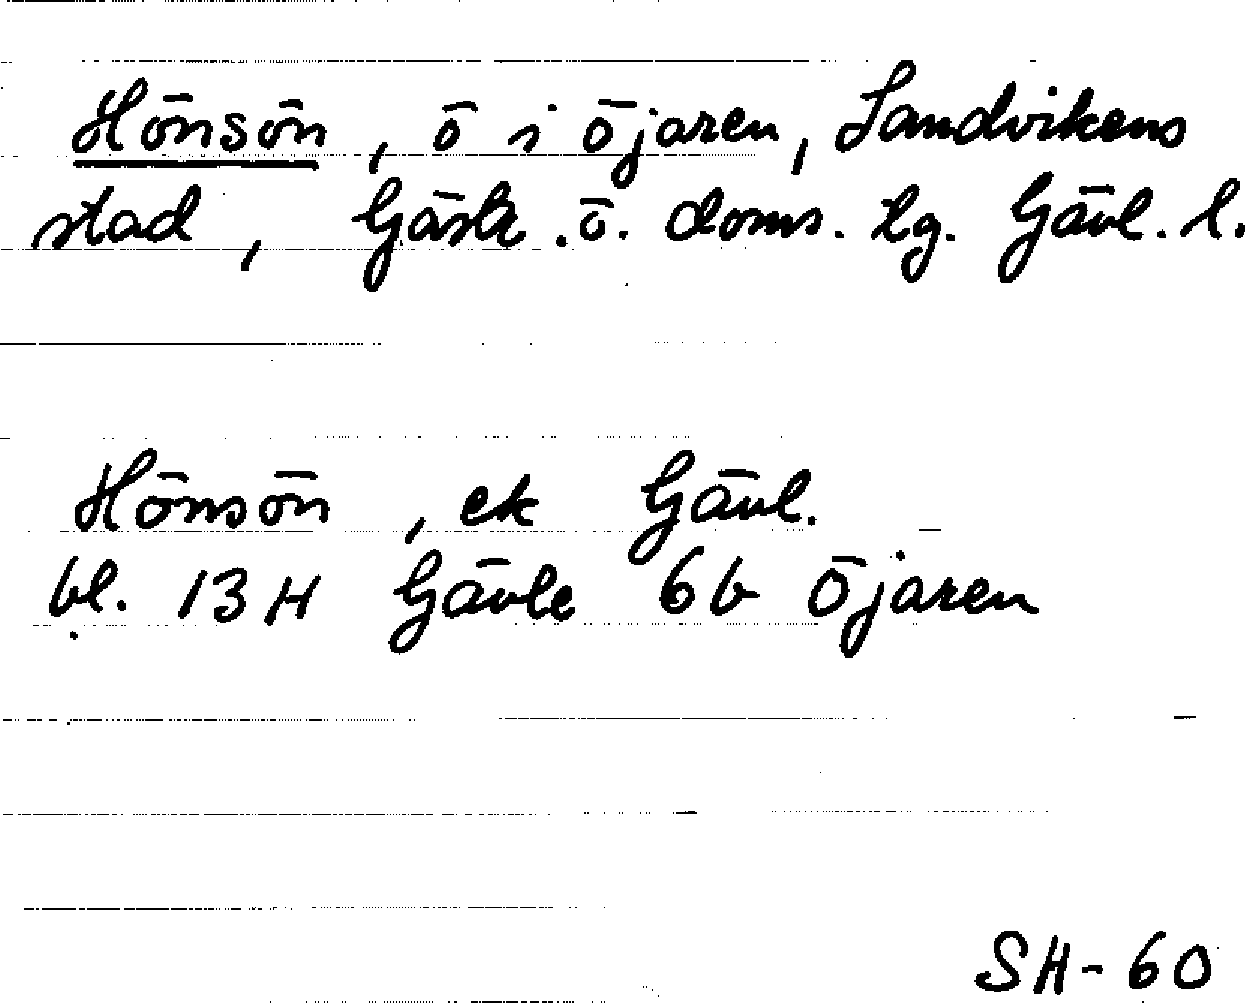 Hönsön, ö i Öjaren, Sandvikens
stad, Gästr. ö. doms. tg. Gävl. l.
Hönsön, ek Gävl.
bl. 13H Gävle 6b Öjaren
SH-60